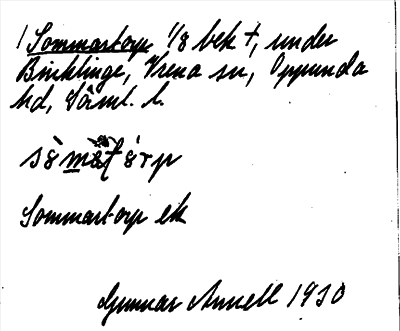 1 Sommartorp 1/8 bek †, under
Binklinge, Vrena sn, Oppunda
hd, Söml. l.
Sommartorp ek
Gunnar Annell 1930